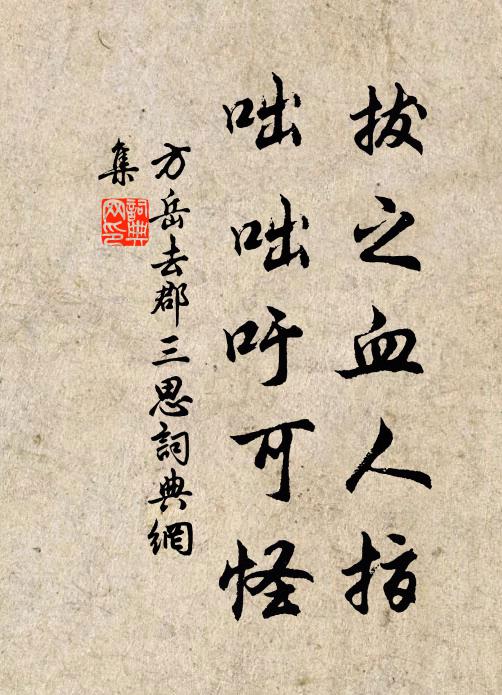 拔之血人指
咄咄吁可怪
方岳去郡三思詞典網
集
詞典網印